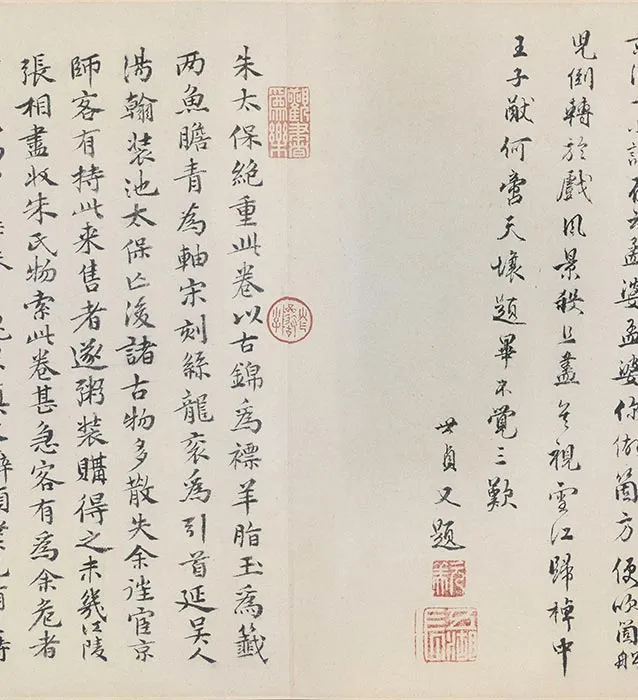 孟婆孟婆你做箇方便吹箇船
兒倒轉於戲風景殺且盡矣視雪江歸棹中
王子猷何啻天壤題畢不覺三歎
世貞又題
朱太保絕重此卷以古錦為褾羊脂玉為籤
两魚膽青為軸宋刻絲龍衮為引首延吳人
湯翰装池太保亡後諸古物多散失余往宦京
師客有持此来售者遂粥装購得之未幾江陵
張相盡收朱氏物索此卷甚急客有為余危者